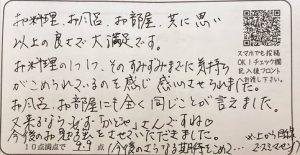 お料理、お風呂、お部屋、共に思い
以上の良さで大満足です。
お料理の1つ1つ、そのすみずみまで気持ち
がこめられているのを感じ感心させられました。
お風呂、お部屋にも全く同じことが言えました。
又来るなら必ず
さんですね♡
今後のお勉強をさせていただきました。
10点満点で 9.5 点
(今後のさらなる期待をこめて…
※上から目線
スマホでも投稿
OK!チェック欄
記入後フロント
へお渡し下さい。